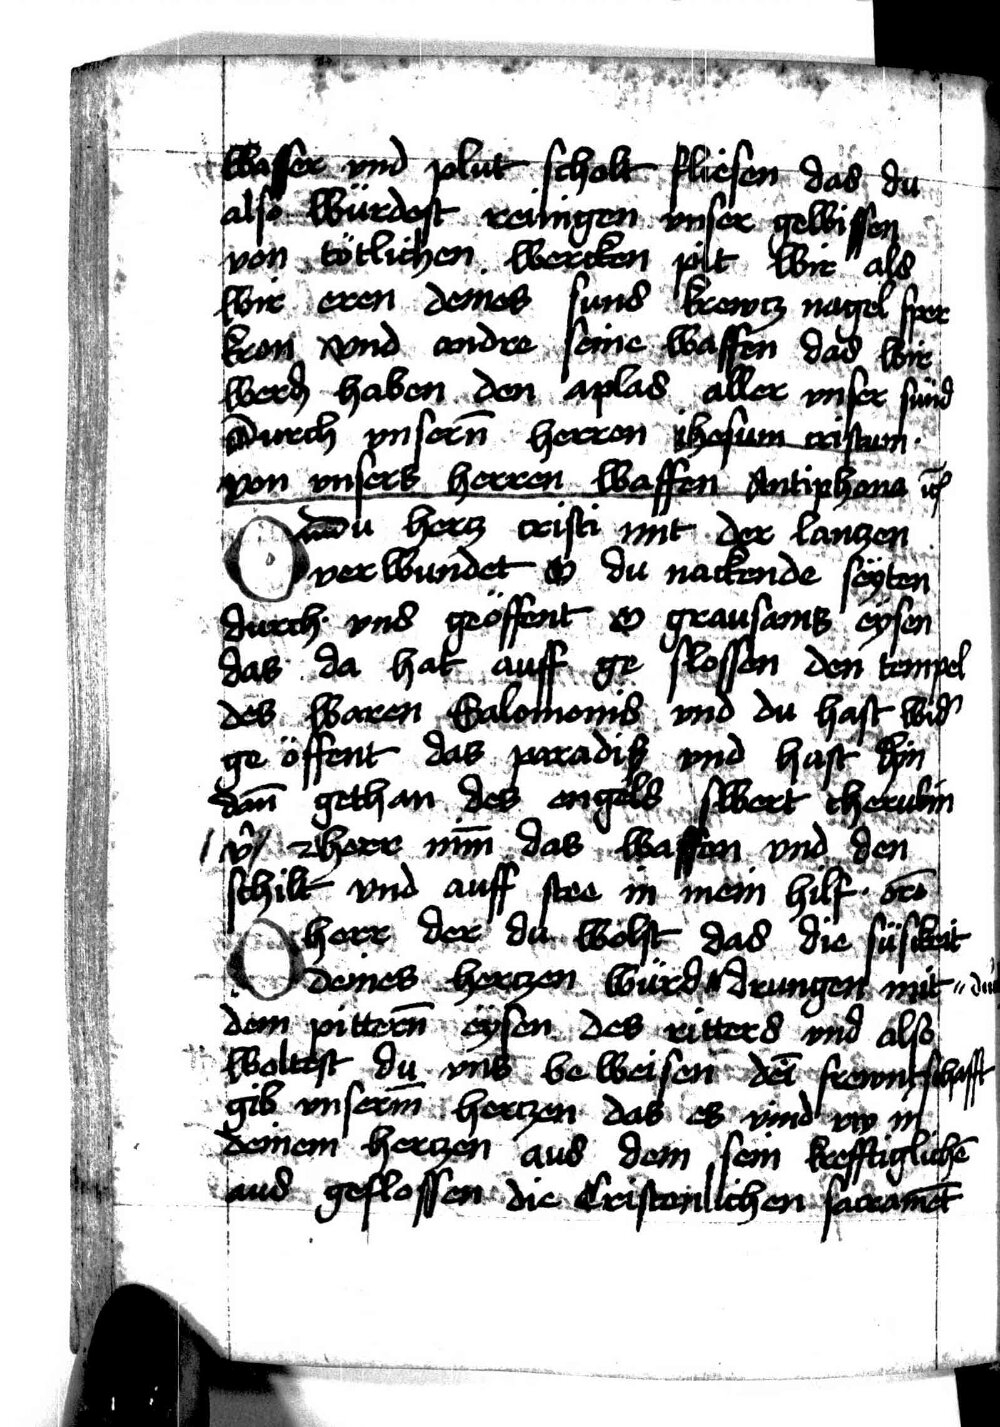 wasser vnd plut scholt fliesen das du
also würdest reinigen vnser gewissen
von tötlichen wercken pit wir als
wir eren deines suns krewtz nagel sper
kron vnd andre seine waffen das wir
werdn haben den aplas aller vnser sünd
Durch vnsern̄ herren ihesum cristum.
von vnsers herren waffen Antiphona
O du hertz cristi mit der lantzen
verwundet O du nackende seÿten
durch vns geöffent O grausams eÿsen
das da hat auff ge slossen den tempel
des waren Salomonis vnd du hast wid'
ge öffent das paradiß vnd hast hin
dan̄ gethan des engels swert cherubin
herr nim̄ das waffen vnd den
schilt vnd auff stee in mein hilf. oro
O herr der du wolst das die süsikeit
deines hertzen würd drungen mit
dem pittern̄ eÿsen des ritters vnd also
woltest du vns be weisen dei frewntschafft
gib vnserm̄ hertzen das es vind rw in
deinem hertzen aus dem sein krefftiglichē
aus geflossen die Cristenlichen sacramēt